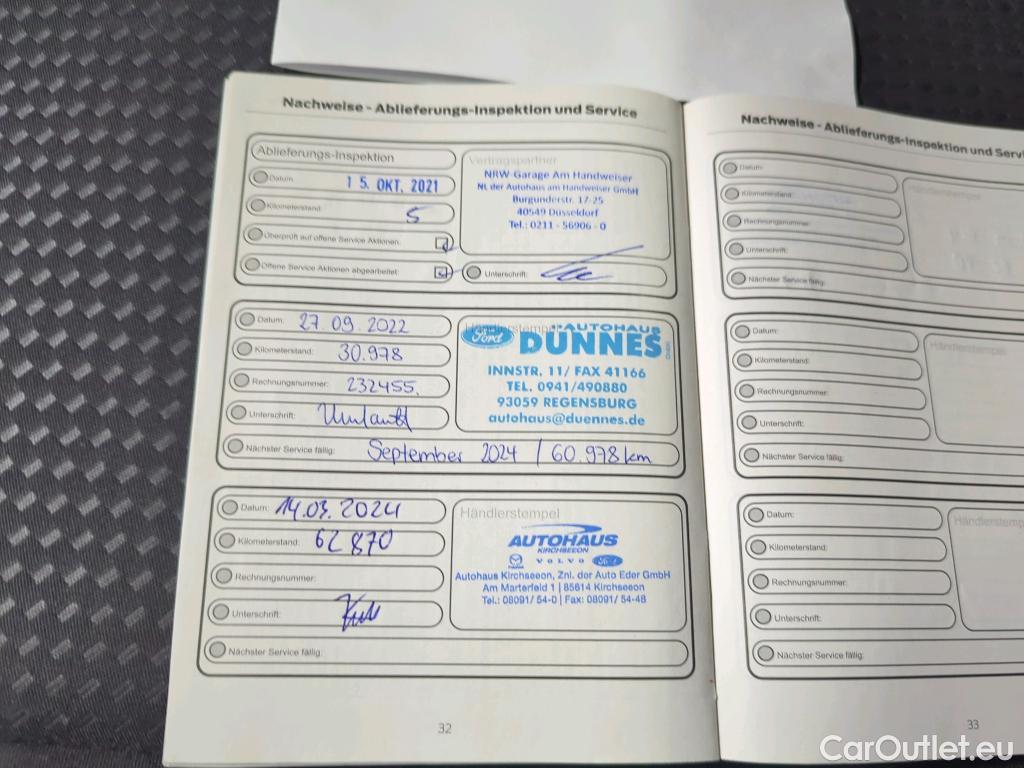 Nachweise - Ablieferungs-Inspektion und Service
Ablieferungs-Inspektion
Datum: 15. OKT. 2021
Kilometerstand: 5
Überprüft auf offene Service Aktionen:
Offene Service Aktionen abgearbeitet:
Vertragspartner
NRW-Garage Am Handweiser
NL der Autohaus am Handweiser GmbH
Burgunderstr. 17-25
40549 Düsseldorf
Tel.: 0211 - 56906 - 0
Unterschrift:
Datum: 27.09.2022
Kilometerstand: 30.978
Rechnungsnummer: 232455.
Unterschrift:
Nächster Service fällig: September 2024 / 60.978 km
Händlerstempel
Ford AUTOHAUS
DÜNNES GmbH
INNSTR. 11/ FAX 41166
TEL. 0941/490880
93059 REGENSBURG
autohaus@duennes.de
Datum: 14.03.2024
Kilometerstand: 62870
Rechnungsnummer:
Unterschrift:
Nächster Service fällig:
Händlerstempel
AUTOHAUS
KIRCHSEEON
VOLVO
Autohaus Kirchseeon, Znl. der Auto Eder GmbH
Am Marterfeld 1 | 85614 Kirchseeon
Tel.: 08091/ 54-0 | Fax: 08091/ 54-48
32
Nachweise - Ablieferungs-Inspektion und Servi
Datum:
Kilometerstand:
Rechnungsnummer:
Unterschrift:
Nächster Service fällig:
Datum:
Kilometerstand:
Rechnungsnummer:
Unterschrift:
Nächster Service fällig:
Händlerstempel
Datum:
Kilometerstand:
Rechnungsnummer:
Unterschrift:
Nächster Service fällig:
Händlerstempe
33
CarOutlet.eu